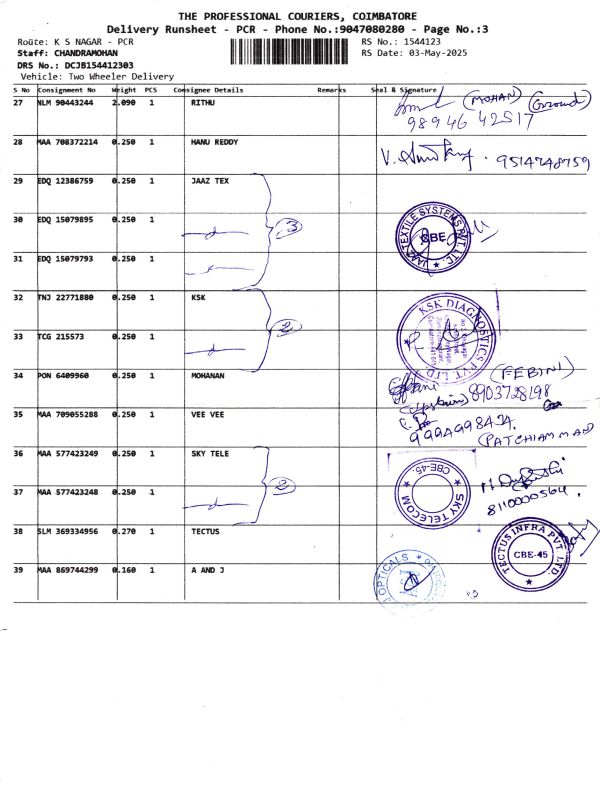 THE PROFESSIONAL COURIERS, COIMBATORE
Delivery Runsheet - PCR - Phone No.:9047080280 - Page No.:3
Route: K S NAGAR - PCR
RS No.: 1544123
Staff: CHANDRAMOHAN
RS Date: 03-May-2025
DRS No.: DCJB154412303
Vehicle: Two Wheeler Delivery
S No Consignment No Weight PCS Consignee Details Remarks Seal & Signature
27 NLM 90443244 2.090 1 RITHU (MOHAN) (Ground)
98946 42517
28 MAA 708372214 0.250 1 HANU REDDY 9514748759
29 EDQ 12386759 0.250 1 JAAZ TEX
30 EDQ 15079895 0.250 1 3 JAAZ TEXTILE SYSTEMS PVT. LTD. CBE
31 EDQ 15079793 0.250 1
32 TNJ 22771880 0.250 1 KSK 2 KSK DIAGNOSTICS PVT. LTD.
33 TCG 215573 0.250 1
34 PON 6409960 0.250 1 MOHANAN (FEBINI)
8903728198
35 MAA 709055288 0.250 1 VEE VEE 9994998434.
(PATCHIAMMAL)
36 MAA 577423249 0.250 1 SKY TELE 2 SKY TELECOM CBE-45
37 MAA 577423248 0.250 1 8110000564
38 SLM 369334956 0.270 1 TECTUS TECTUS INFRA PVT. LTD. CBE-45
39 MAA 869744299 0.160 1 A AND J OPTICALS